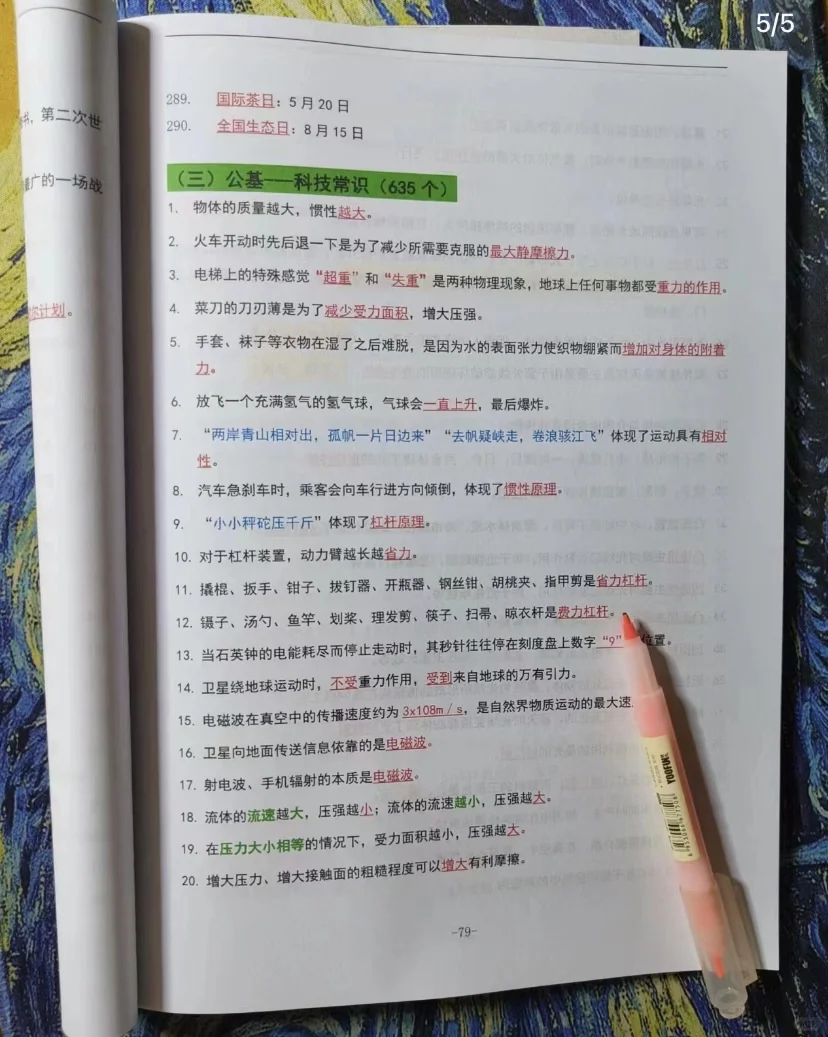 5/5
第二次世
广的一场战
计划。
289. 国际茶日：5 月 20 日
290. 全国生态日：8 月 15 日
（三）公基——科技常识（635 个）
1. 物体的质量越大，惯性越大。
2. 火车开动时先后退一下是为了减少所需要克服的最大静摩擦力。
3. 电梯上的特殊感觉“超重”和“失重”是两种物理现象，地球上任何事物都受重力的作用。
4. 菜刀的刀刃薄是为了减少受力面积，增大压强。
5. 手套、袜子等衣物在湿了之后难脱，是因为水的表面张力使织物绷紧而增加对身体的附着
力。
6. 放飞一个充满氢气的氢气球，气球会一直上升，最后爆炸。
7. “两岸青山相对出，孤帆一片日边来”“去帆疑峡走，卷浪骇江飞”体现了运动具有相对
性。
8. 汽车急刹车时，乘客会向车行进方向倾倒，体现了惯性原理。
9. “小小秤砣压千斤”体现了杠杆原理。
10. 对于杠杆装置，动力臂越长越省力。
11. 撬棍、扳手、钳子、拔钉器、开瓶器、钢丝钳、胡桃夹、指甲剪是省力杠杆。
12. 镊子、汤勺、鱼竿、划桨、理发剪、筷子、扫帚、晾衣杆是费力杠杆。
13. 当石英钟的电能耗尽而停止走动时，其秒针往往停在刻度盘上数字“9”位置。
14. 卫星绕地球运动时，不受重力作用，受到来自地球的万有引力。
15. 电磁波在真空中的传播速度约为 3x108m/s，是自然界物质运动的最大速
16. 卫星向地面传送信息依靠的是电磁波。
17. 射电波、手机辐射的本质是电磁波。
18. 流体的流速越大，压强越小；流体的流速越小，压强越大。
19. 在压力大小相等的情况下，受力面积越小，压强越大。
20. 增大压力、增大接触面的粗糙程度可以增大有利摩擦。
-79-
YOOFUN